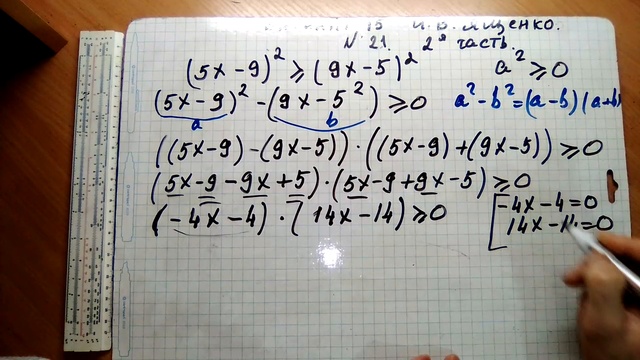 15 И.В. Ященко.
N 21. 2я часть.
(5x-9)² ≥ (9x-5)² a² ≥ 0
(5x-9)² - (9x-5²) ≥ 0 a²-b²=(a-b)(a+b)
a b
((5x-9)-(9x-5))·((5x-9)+(9x-5)) ≥ 0
(5x-9-9x+5)·(5x-9+9x-5) ≥ 0
(-4x-4)·(14x-14) ≥ 0
[-4x-4=0
14x-14=0